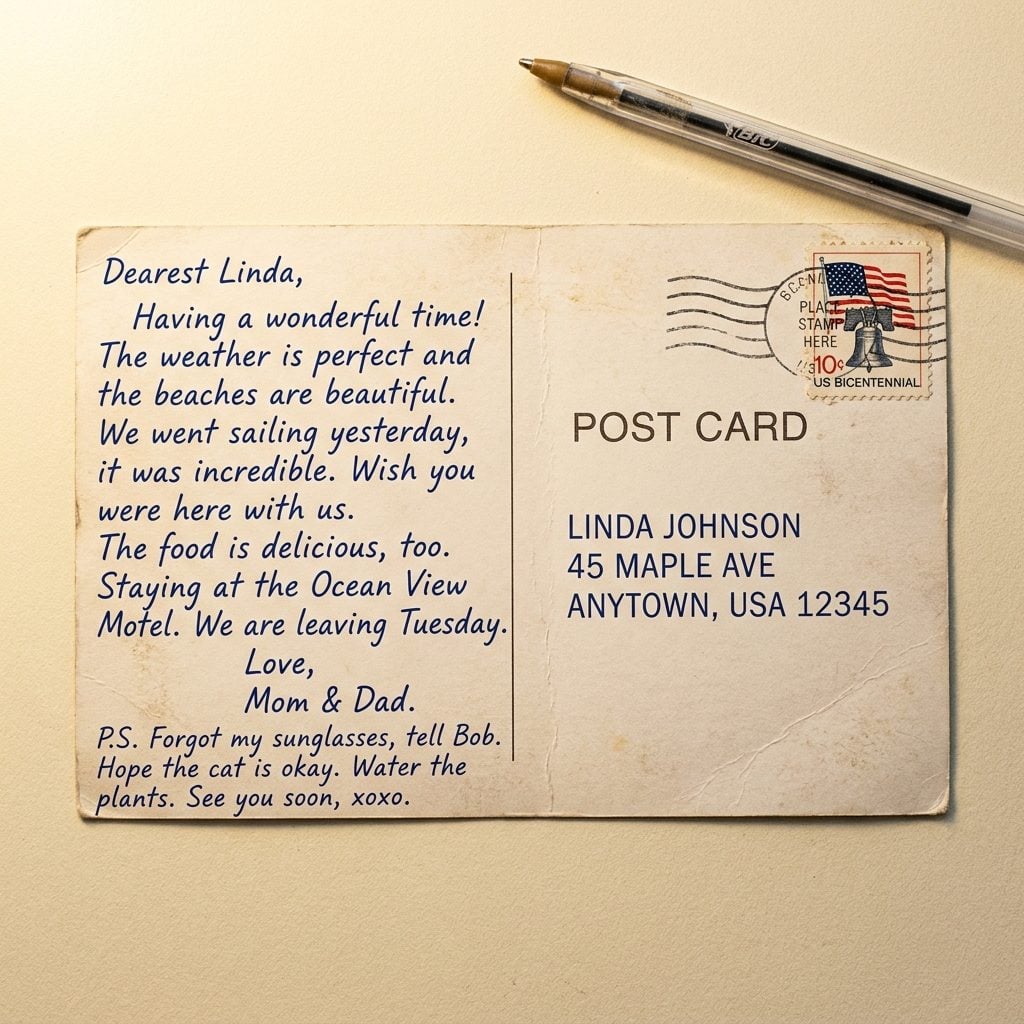 Dearest Linda,
Having a wonderful time!
The weather is perfect and
the beaches are beautiful.
We went sailing yesterday,
it was incredible. Wish you
were here with us.
The food is delicious, too.
Staying at the Ocean View
Motel. We are leaving Tuesday.
Love,
Mom & Dad.
P.S. Forgot my sunglasses, tell Bob.
Hope the cat is okay. Water the
plants. See you soon, xoxo.
BIC
PLACE
STAMP
HERE
10¢
US BICENTENNIAL
POST CARD
LINDA JOHNSON
45 MAPLE AVE
ANYTOWN, USA 12345